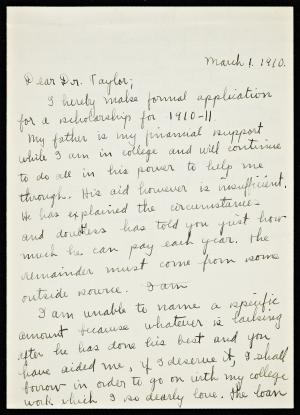 March 1. 1910.
Dear Dr. Taylor;
I hereby make formal application
for a scholarship for 1910-11.
My father is my financial support
while I am in college and will continue
to do all in his power to help me
through. His aid however is insufficient.
He has explained the circumstances
and doubtless has told you just how
much he can pay each year. The
remainder must come from some
outside source. I am
I am unable to name a specific
amount because whatever is lacking
after he has done his best and you
have aided me, if I deserve it, I shall
borrow in order to go on with my college
work which I so dearly love. The loan